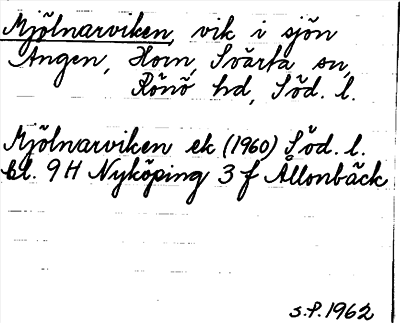 Mjölnarviken, vik i sjön
Ången, Horn, Svärta sn,
Rönö hd, Söd. l.
Mjölnarviken ek (1960) Söd. l.
bl. 9 H Nyköping 3 f Ållonbäck
S.P. 1962